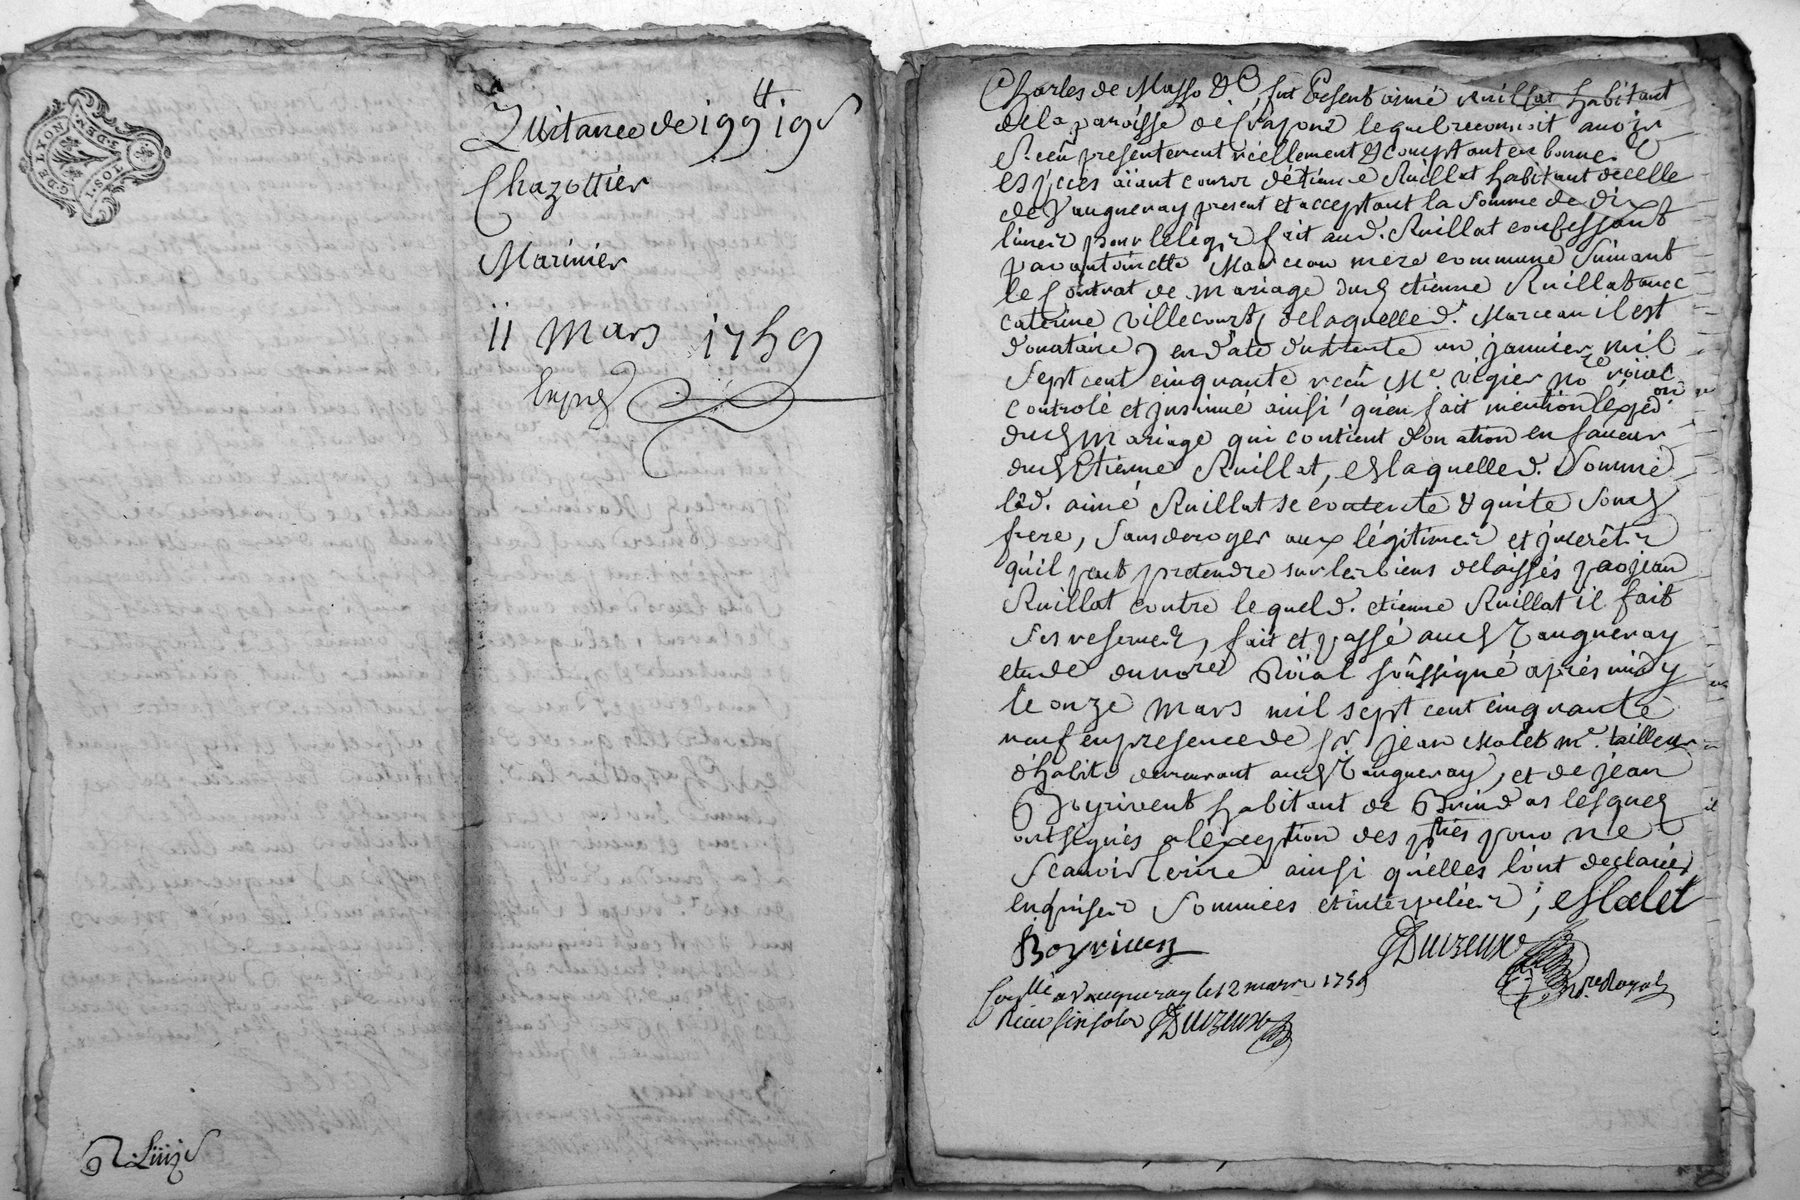 G. DE LYON
Quittance de 199 ₶ 19 s
Chazottier
Marinier
11 Mars 1759
Exped
Charles de Masso &c, fut Présent aimé Ruillat habitant
de la paroisse de lequel reconnoit avoir
Receu présentement réellement & comptant en bonnes
espèces aïant cours d'étienne Ruillat habitant de celle
de Vaugneray present et acceptant la somme de dix
livres pour le légs fait aud. Ruillat confessant
par antoinette Marceau mere commune suivant
le Contrat de mariage dud etienne Ruillat avec
caterine villecourt, de laquelle d. Marceau il est
donataire, en date du trente un janvier mil
sept cent cinquante receu Me. végier nore roïal
controlé et jnsinué ainsi qu'en fait mention l'expedon
dud mariage qui contient donation en faveur
dud Etienne Ruillat, de laquelle d. somme
led. aimé Ruillat se contente & quite sond
frere, sans deroger aux légitimes et jnterêts
qu'il peut pretendre sur les biens delaissés par jean
Ruillat contre lequel d. etienne Ruillat il fait
ses reserves, fait et passé aud Vaugneray
etude du nore Roïal soussigné après midy
le onze mars mil sept cent cinquante
neuf en presence de sr. jean Malet me. tailleur
d'habits demeurant aud Vaugneray, et de jean
Boyrivent habitant de Brindas lesquels
ont signés a l'exception des pties pour ne
scavoir ecrire ainsi qu'elles l'ont declarés
enquises sommées et interpelées, Malet
Boyriven Duizeux
nre Royal
Conllé a Vaugneray le 12 mars 1759
Receu six sols Duizeux